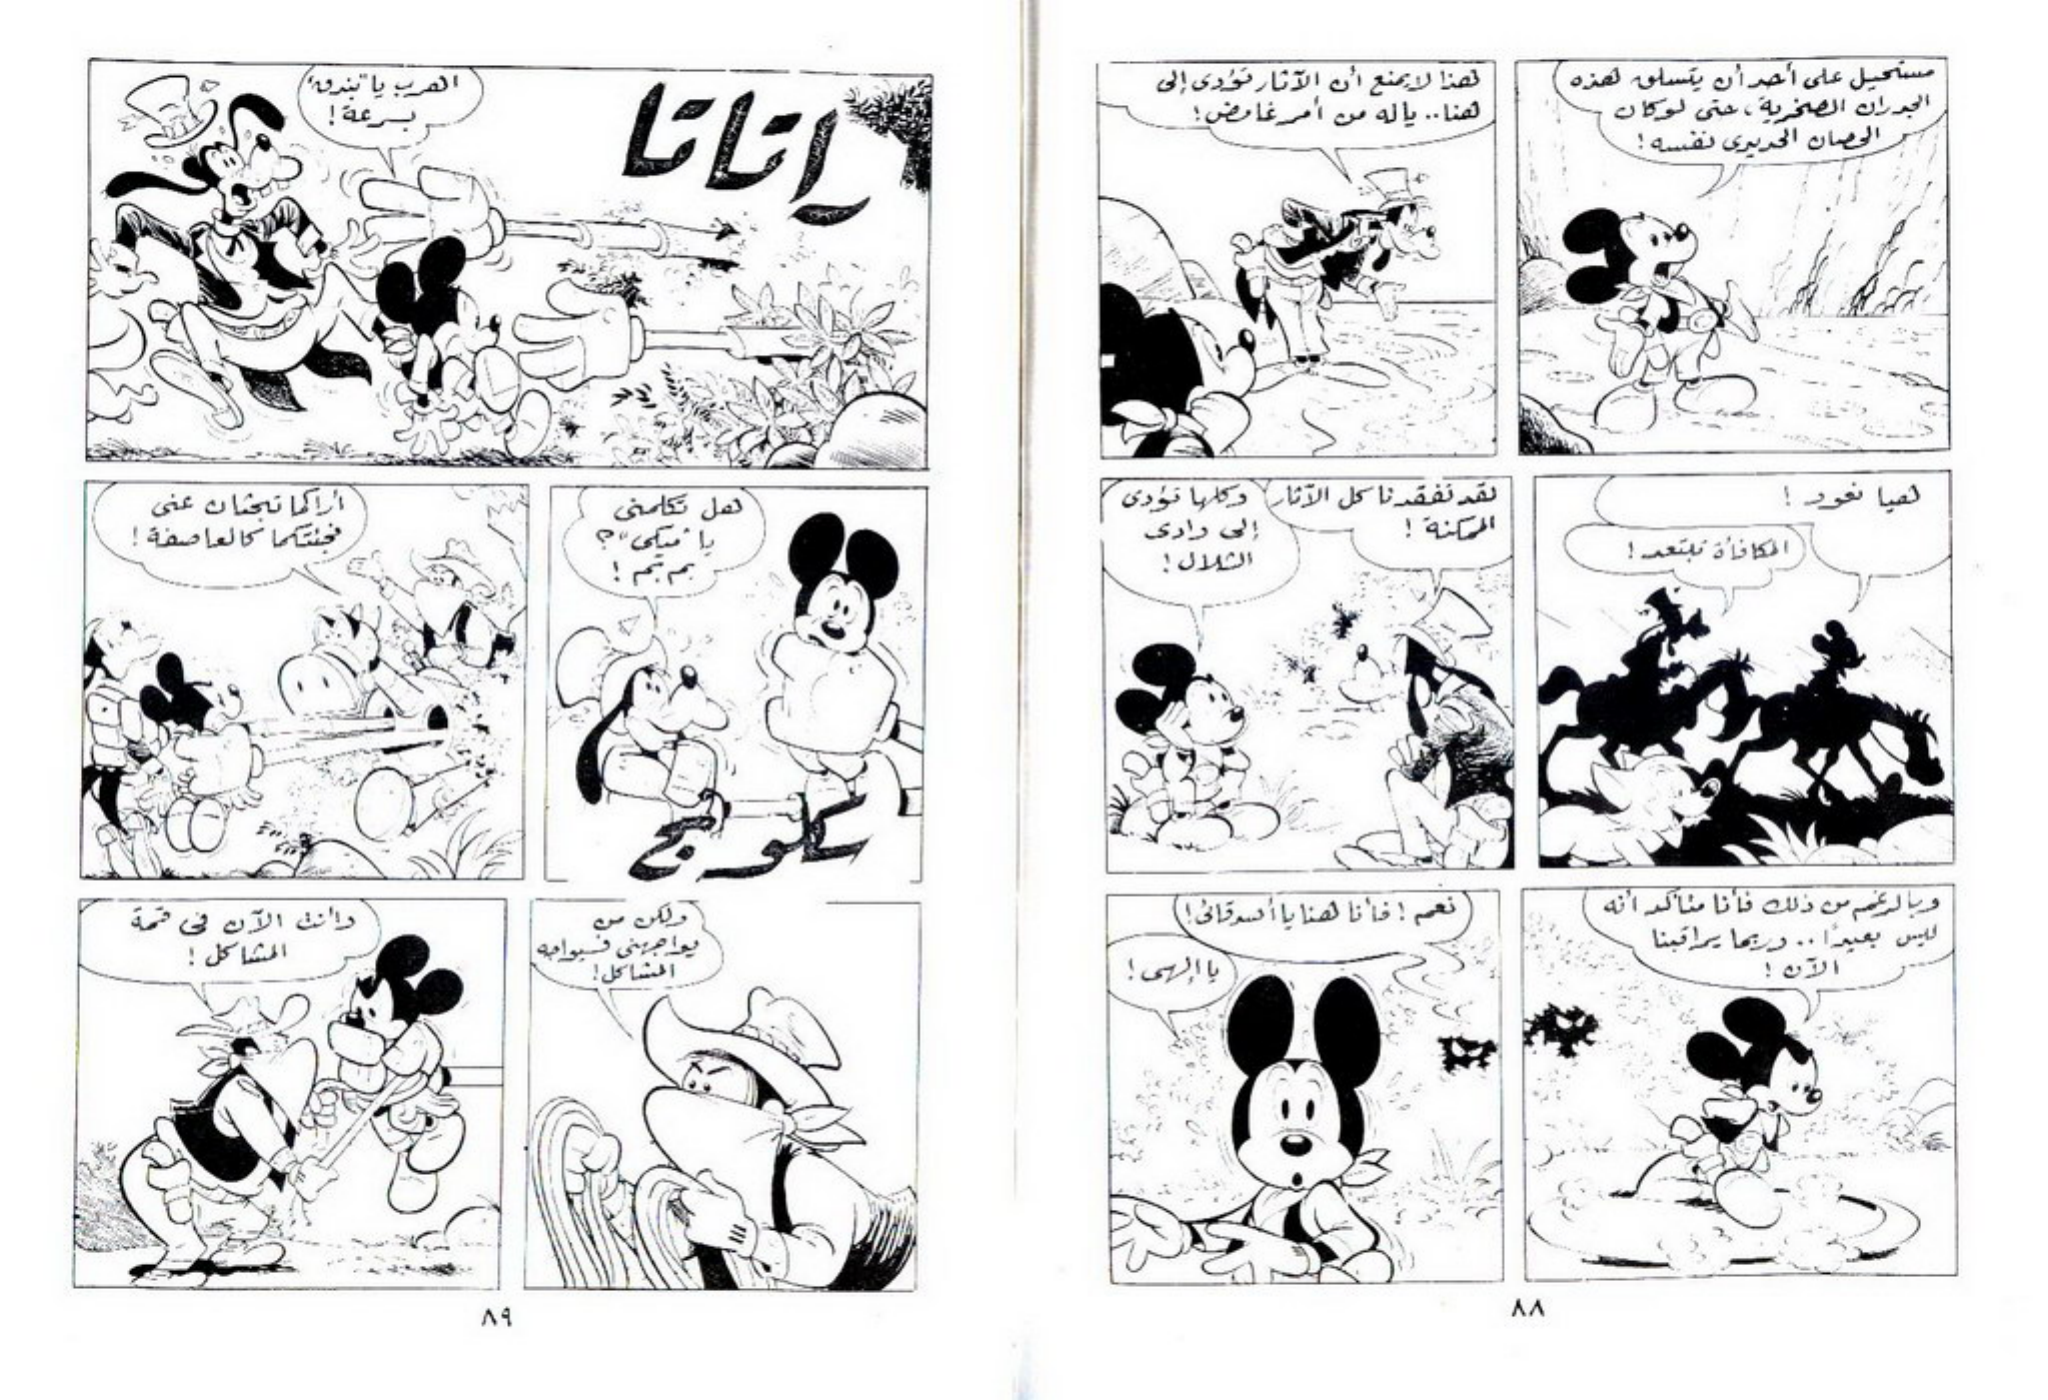 مستحيل على أحد أن يتسلق هذه
الجدران الصخرية، حتى لو كان
الحصان الحديدى نفسه!
هذا لا يمنع أن الآثار تؤدى إلى
هنا.. ياله من أمر غامض!
هيا نعود!
المكافأة تبتعد!
لقد تفقدنا كل الآثار
الممكنة!
وكلها تؤدى
إلى وادى
الشلال!
وبالرغم من ذلك فأنا متأكد أنه
ليس بعيدًا.. وربما يراقبنا
الآن!
نعم! فأنا هنا يا أصدقائى!
يا إلهى!
٨٨
اهرب يا "بندق"
بسرعة!
راتاتا
هل تكلمنى
يا "ميكى"؟
بم بم!
كلونج
أراكما تبحثان عنى
فجئتكما كالعاصفة!
ولكن من
يواجهنى فسيواجه
المشاكل!
وأنت الآن فى قمة
المشاكل!
٨٩